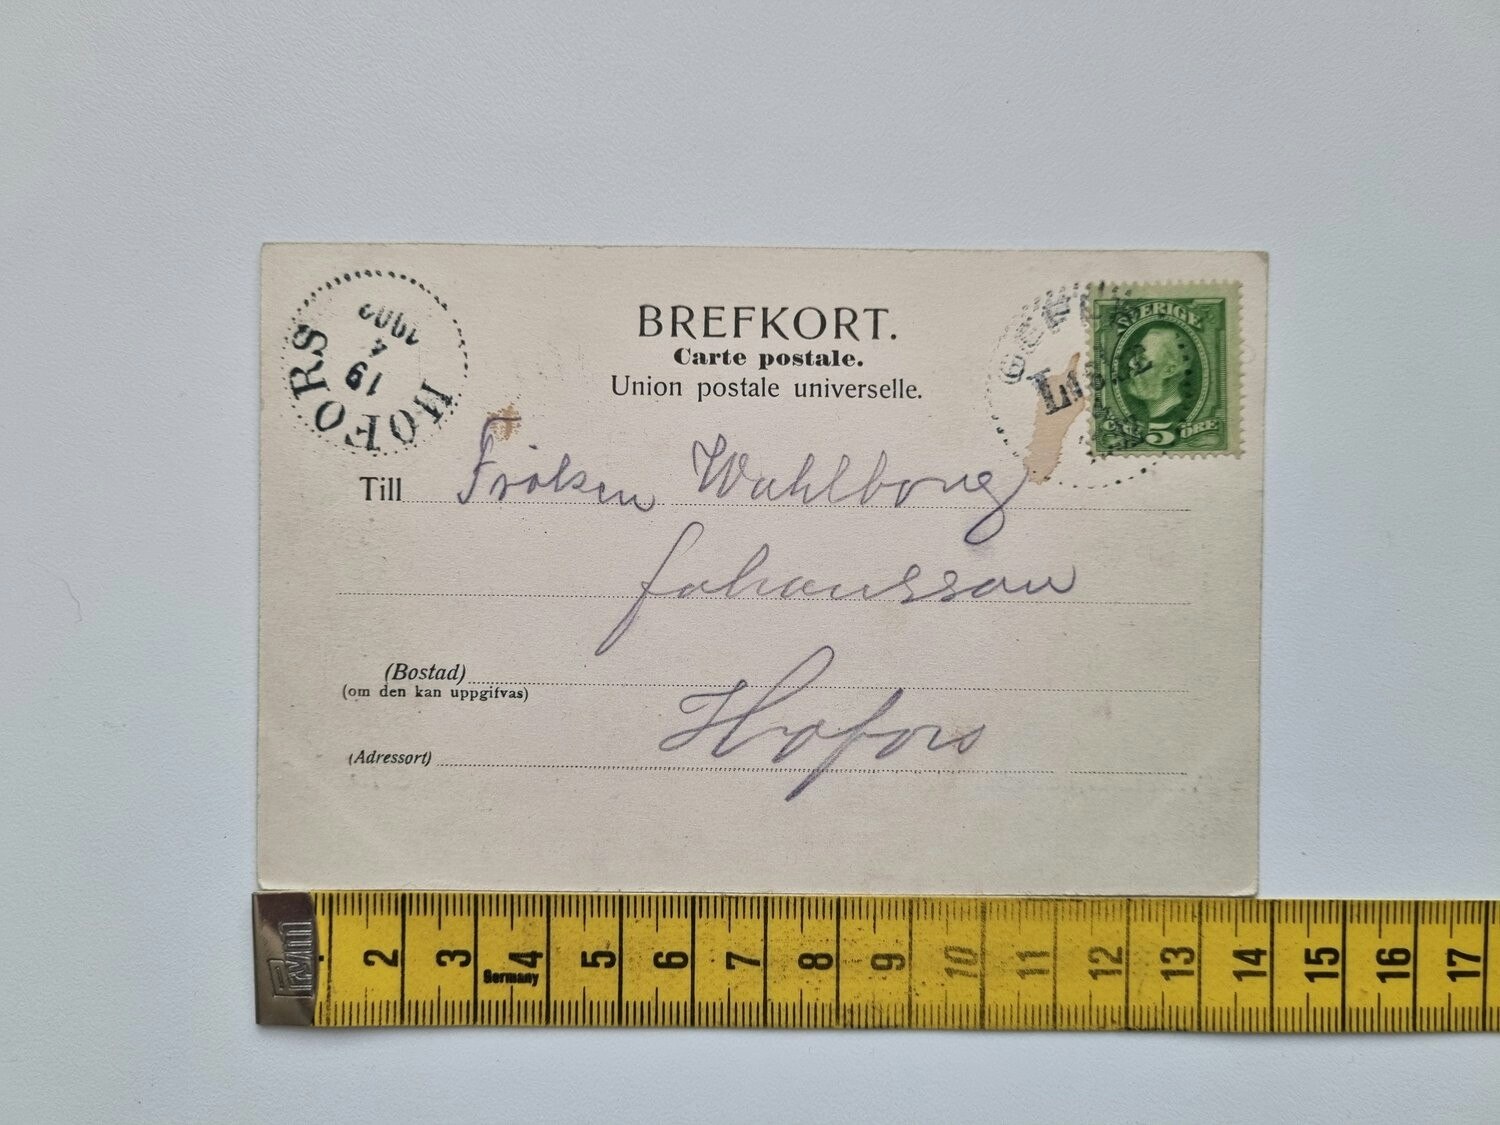 HOFORS
19
4
1903
BREFKORT.
Carte postale.
Union postale universelle.
GEFLE
SVERIGE
5 ÖRE
Till Fröken Wahlborg
Johansson
(Bostad)
(om den kan uppgifvas)
Hofors
(Adressort)
Pvm
1 2 3 4 5 6 7 8 9 10 11 12 13 14 15 16 17
Germany